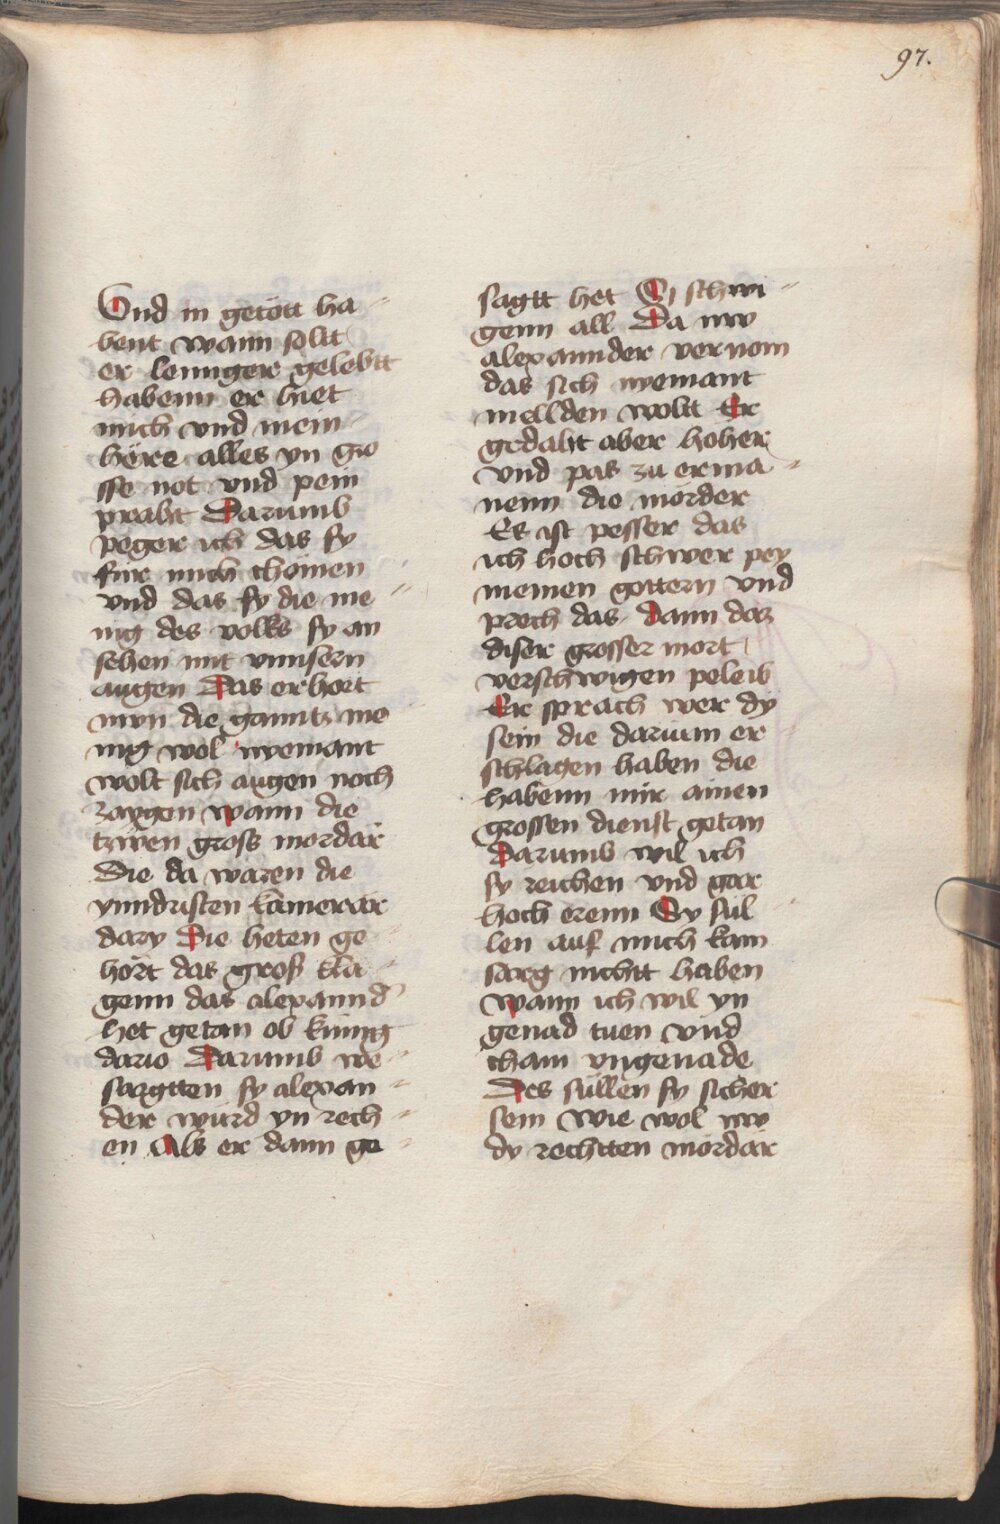 97.
Vnd in getött ha
bent wann solt
er lennger gelebtt
habenn er hiet
mich vnd mein
höre alles yn gro
sse not vnd pein
praht Darumb
peger ich das sy
für mich chomen
vnd das sy die me
nig des volks sy an
sehen mit vnnsern
augen Das erhort
nwn die ganntz me
nig wol nyemant
wolt sich augen noch
zaygen wann die
tzwen gross mordär
Die da waren die
vnndristen kamerär
dary Die heten ge
hört das groß kla
genn das alexannd
het getan ob künig
dario Darumb we
sargtten sy alexan
der würd yn rech
en Als er dann ge
sagtt het Si schwi
genn all Da nw
alexannder vernom
das sich nyemant
mellden wolt Er
gedaht aber hoher
vnd pas zu erma
nenn die mörder
Es ist pesser das
ich hoch schwer pey
meinen gottern vnd
prech das dann daz
diser grosser mort
verschwigen peleib
Er sprach wer dy
sein die darium er
schlagen haben die
habenn mir ainen
grossen dienst getan
Darumb wil ich
sy reichen vnd gar
hoch erenn Sy sül
len auf mich kain
sarg nichtt haben
wann ich wil yn
genad tuen vnd
chain vngenade
Des süllen sy sicher
sein wie wol nw
dy rechtten mördar